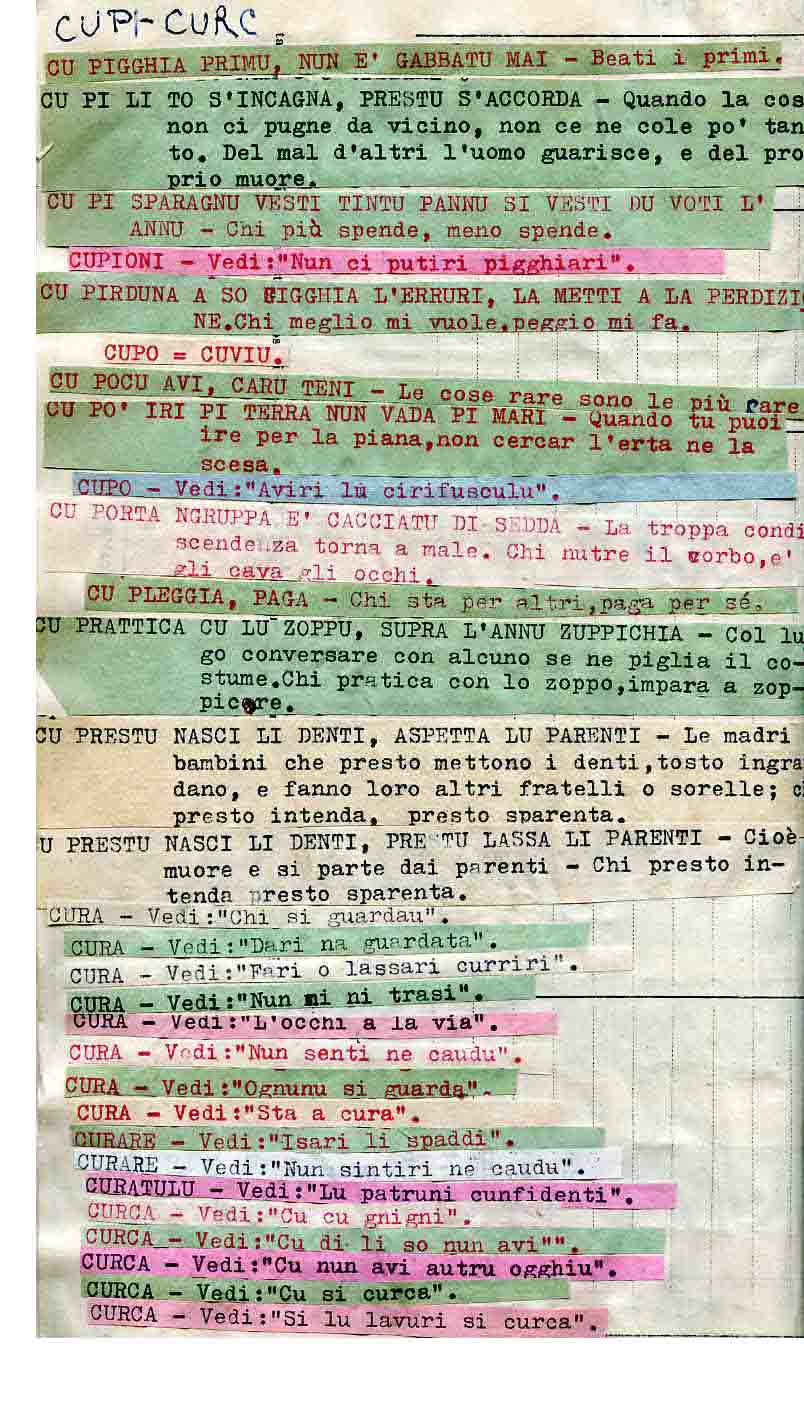 CUPI-CURC
CU PIGGHIA PRIMU, NUN E' GABBATU MAI - Beati i primi.
CU PI LI TO S'INCAGNA, PRESTU S'ACCORDA - Quando la cos
non ci pugne da vicino, non ce ne cole po' tan
to. Del mal d'altri l'uomo guarisce, e del pro
prio muore.
CU PI SPARAGNU VESTI TINTU PANNU SI VESTI DU VOTI L'
ANNU - Chi più spende, meno spende.
CUPIONI - Vedi:"Nun ci putiri pigghiari".
CU PIRDUNA A SO FIGGHIA L'ERRURI, LA METTI A LA PERDIZIO
NE.Chi meglio mi vuole,peggio mi fa.
CUPO = CUVIU.
CU POCU AVI, CARU TENI - Le cose rare sono le più care
CU PO' IRI PI TERRA NUN VADA PI MARI - Quando tu puoi
ire per la piana,non cercar l'erta ne la
scesa.
CUPO - Vedi:"Aviri lu cirifusculu".
CU PORTA NGRUPPA E' CACCIATU DI SEDDA - La troppa condi
scendenza torna a male. Chi nutre il corbo,e'
gli cava gli occhi.
CU PLEGGIA, PAGA - Chi sta per altri,paga per sé.
CU PRATTICA CU LU ZOPPU, SUPRA L'ANNU ZUPPICHIA - Col lu
go conversare con alcuno se ne piglia il co-
stume.Chi pratica con lo zoppo,impara a zop-
picare.
CU PRESTU NASCI LI DENTI, ASPETTA LU PARENTI - Le madri
bambini che presto mettono i denti,tosto ingra
dano, e fanno loro altri fratelli o sorelle; c
presto intenda, presto sparenta.
U PRESTU NASCI LI DENTI, PRESTU LASSA LI PARENTI - Cioè-
muore e si parte dai parenti - Chi presto in-
tenda presto sparenta.
CURA - Vedi:"Chi si guardau".
CURA - Vedi:"Dari na guardata".
CURA - Vedi:"Fari o lassari curriri".
CURA - Vedi:"Nun mi ni trasi".
CURA - Vedi:"L'occhi a la via".
CURA - Vedi:"Nun senti ne caudu".
CURA - Vedi:"Ognunu si guarda".
CURA - Vedi:"Sta a cura".
CURARE - Vedi:"Isari li spaddi".
CURARE - Vedi:"Nun sintiri ne caudu".
CURATULU - Vedi:"Lu patruni cunfidenti".
CURCA - Vedi:"Cu cu gnigni".
CURCA - Vedi:"Cu di li so nun avi"".
CURCA - Vedi:"Cu nun avi autru ogghiu".
CURCA - Vedi:"Cu si curca".
CURCA - Vedi:"Si lu lavuri si curca".